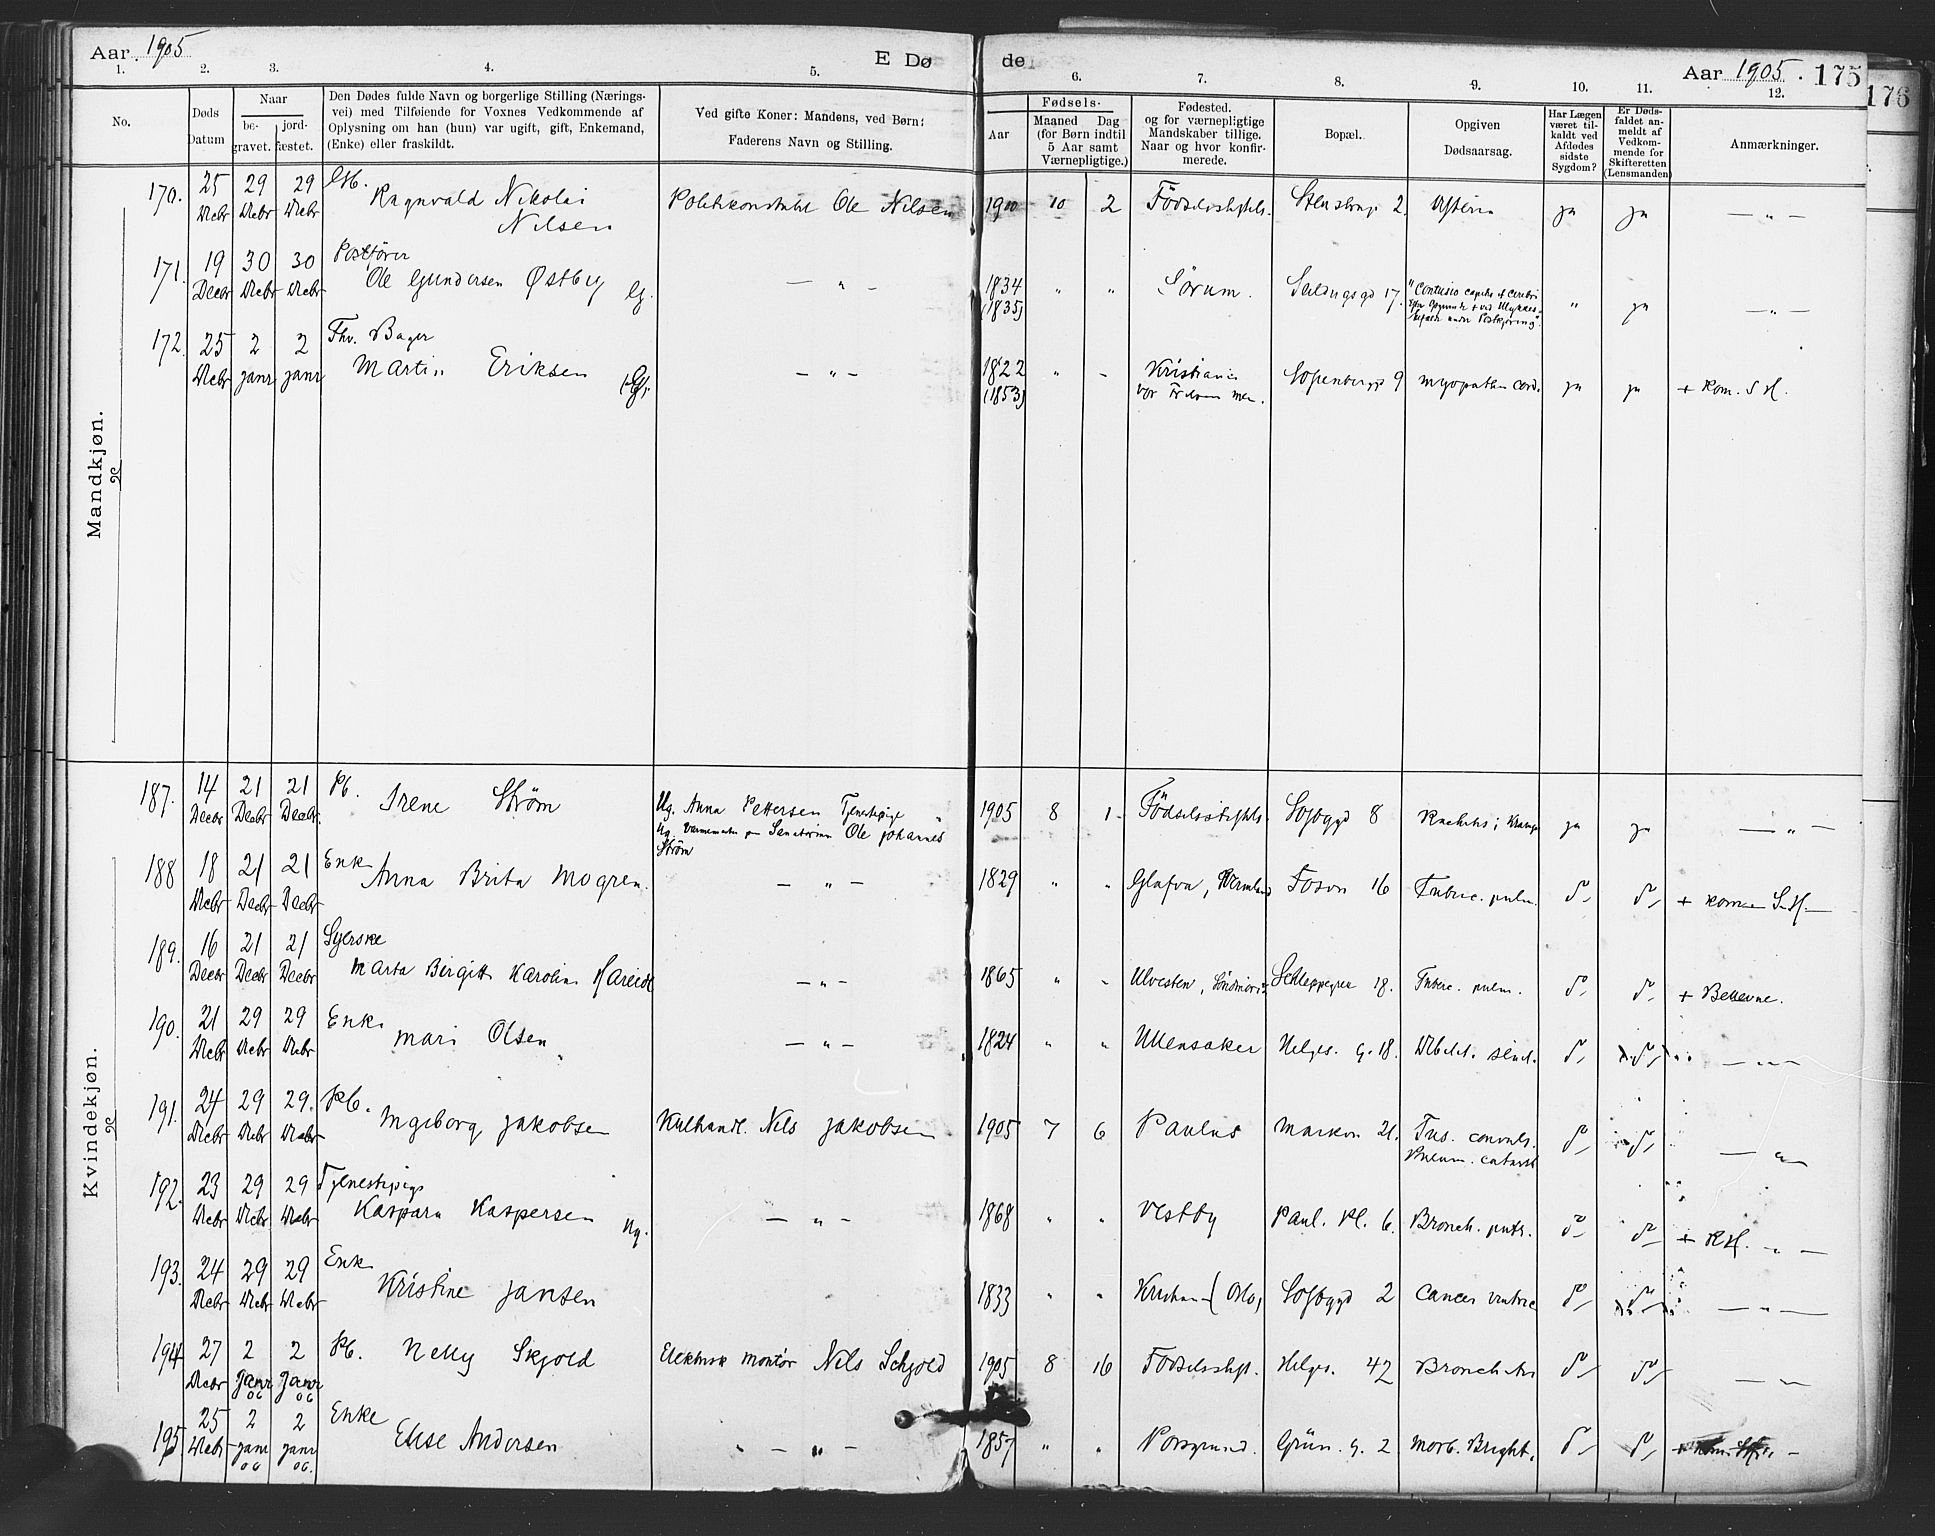 Aar 1905
E Dø
de
Aar 1905. 175
176
1. 2. 3. 4. 5. 6. 7. 8. 9. 10. 11. 12.
No.
Døds Datum
Naar
be-gravet.
jord-fæstet.
Den Dødes fulde Navn og borgerlige Stilling (Nærings-
vei) med Tilføiende for Voxnes Vedkommende af
Oplysning om han (hun) var ugift, gift, Enkemand,
(Enke) eller fraskildt.
Ved gifte Koner: Mandens, ved Børn:
Faderens Navn og Stilling.
Fødsels-
Aar
Maaned Dag
(for Børn indtil
5 Aar samt
Værnepligtige.)
Fødested.
og for værnepligtige
Mandskaber tillige.
Naar og hvor konfir-
merede.
Bopæl.
Opgiven
Dødsaarsag.
Har Lægen
været til-
kaldt ved
Afdødes
sidste
Sygdom?
Er Døds-
faldet an-
meldt af
Vedkom-
mende for
Skifteretten
(Lensmanden)
Anmærkninger.
Mandkjøn.
170. 25 Decbr 29 Decbr 29 Decbr
Ragnvald Nikolai
Nilsen
Politikonstabel Ole Nilsen 1900 10 2 Fødselsstiftels. Stenstrup 2. ja ja — " —
171. 19 Decbr 30 Decbr 30 Decbr
Postfører
Ole Gundersen Østby G.
— " — 1834 (1835) " " Sørum. 17. " ja — " —
"Contusio capitis et cerebri
172. 25 Decbr 2 janr 2 janr
Fhv. Bager
Martin Eriksen
— " — 1822 (1853) " - Kristiania
Vor Frelsers men.
Sofienbergg 9 myopathia cord. ja ja + Kom. S H.
Kvindekjøn.
187. 14 Decbr 21 Decbr 21 Decbr.
Pb. Irene Strøm
Ug. Anna Pettersen Tjenestepige
Ole Johannes
Strøm
1905 8 1 Fødselsstiftels. Sofbggd 8 ja ja — " —
188 18 Decbr 21 Decbr 21 Decbr
Enk
Anna Brita Mogren.
— " — 1829 " " Glafva, Wermland Fossvn 16 Tuberc. pulm. d/ d/ + Kom S.H. —
189. 16 Decbr 21 Decbr 21 Decbr
Syerske
Marta Birgitt Karolin Hareide
— " — 1865 " - Ulvesten, Søndmør Schleppegrel 18. Tuberc. pulm. d/ d/ + Bellevue.
190. 21 Decbr 29 Decbr 29 Decbr
Enk.
Mari Olsen
— " — 1824 " " Ullensaker Helges. g. 18. Debilit. senil. d/ d/ — " —
191. 24 Decbr 29 Decbr 29. Decbr
Pb. Ingeborg Jakobsen
Kulhandl. Nils Jakobsen 1905 7 6 Paulus Markvn 21. Tus. convuls.
Pneum. catarrh
d/ d/ — " —
192. 23 Decbr 29 Decbr 29 Decbr
Tjenestepige
Kaspara Kaspersen Ug.
— " — 1868 " " Vestby Paul. Pl. 6. Bronch. putr. d/ d/ + RH. — " —
193. 24 Decbr 29 Decbr 29 Decbr
Enk
Kristine Jansen
1833 " " Kristiania (Oslo) Sofbggd 2 Cancer ventric d/ d/ — " —
194 27 Decbr 2 Janr 06 2 Janr 06
Pb. Nelly Skjold
Elektrisk Montør Nils Schjold 1905 8 16 Fødselsstift. Helges. 42 Bronchitis d/ d/ — " —
195 25 Decbr 2 janr 06 2 janr 06.
Enke
Elise Andersen
— " — 1857 " " Porsgrund. Grün. g. 2 Morb. Bright. d/ d/